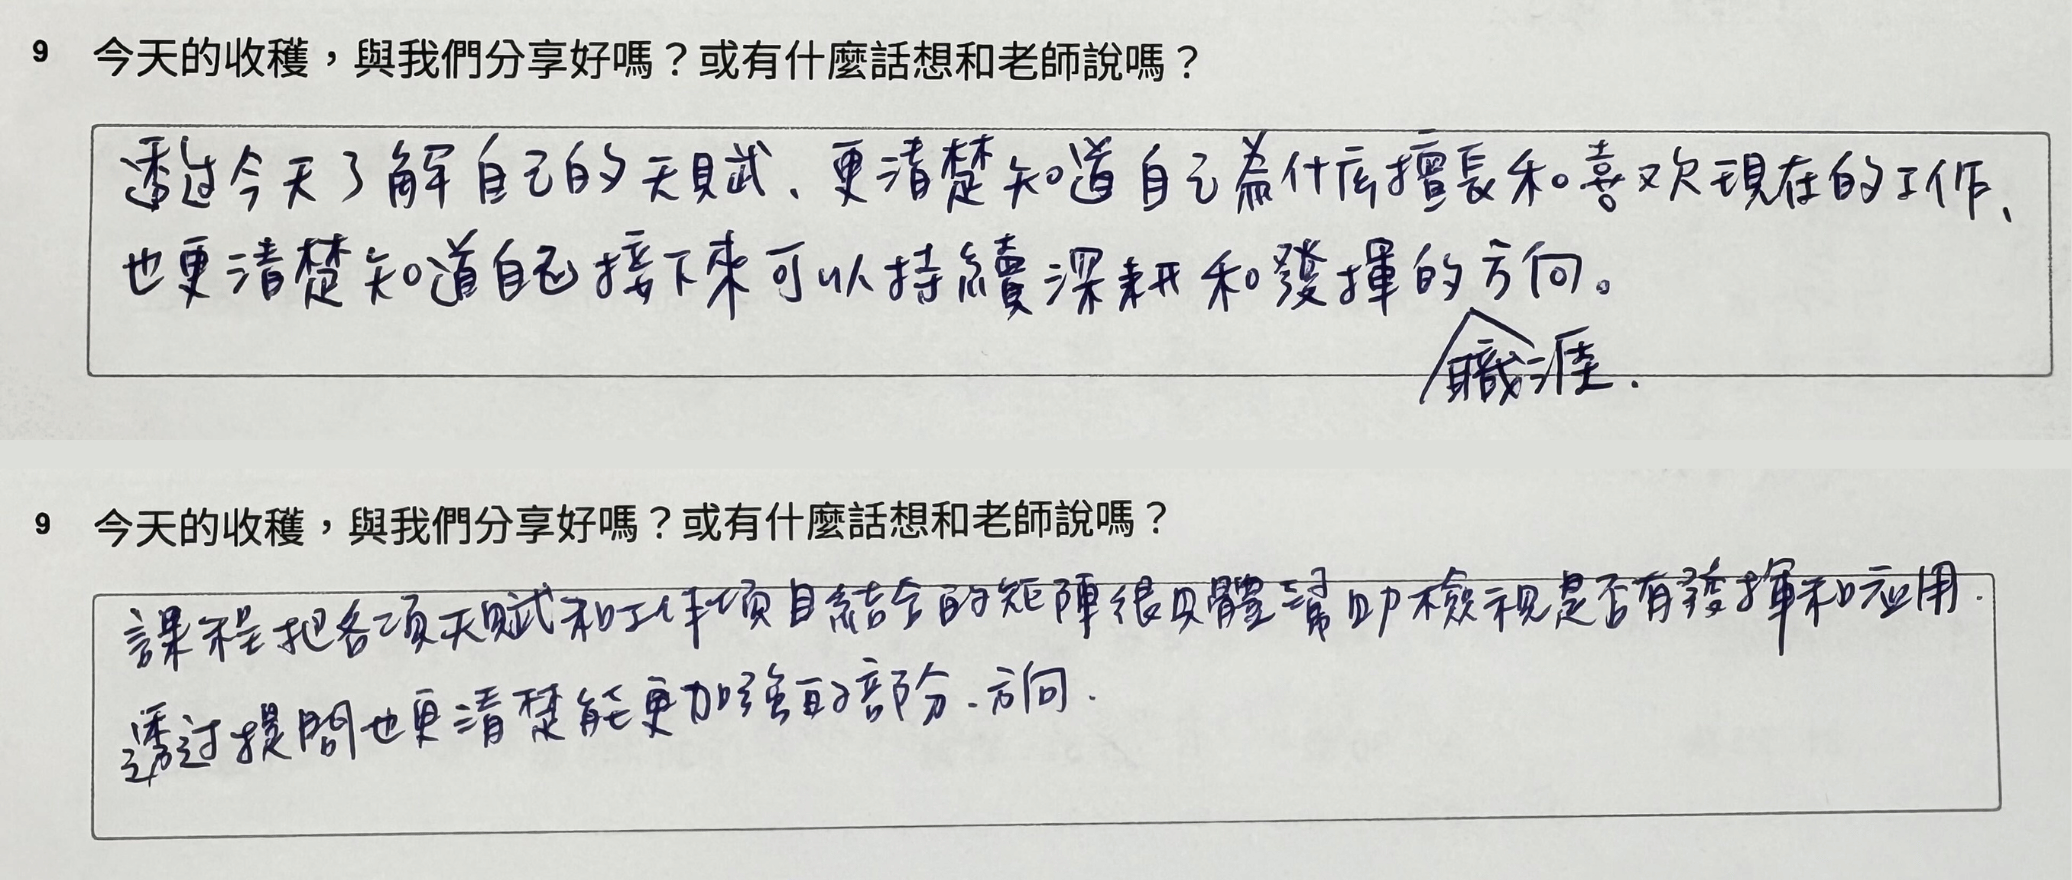 9 今天的收穫，與我們分享好嗎？或有什麼話想和老師說嗎？
透过今天了解自己的天賦、更清楚知道自己為什麼擅長和喜欢現在的工作、
也更清楚知道自己接下來可以持續深耕和發揮的方向。
職涯.
9 今天的收穫，與我們分享好嗎？或有什麼話想和老師說嗎？
課程把各項天賦和工作項目結合的矩陣很具體幫助檢視是否有發揮和应用.
透过提問也更清楚能更加強的部分.方向.